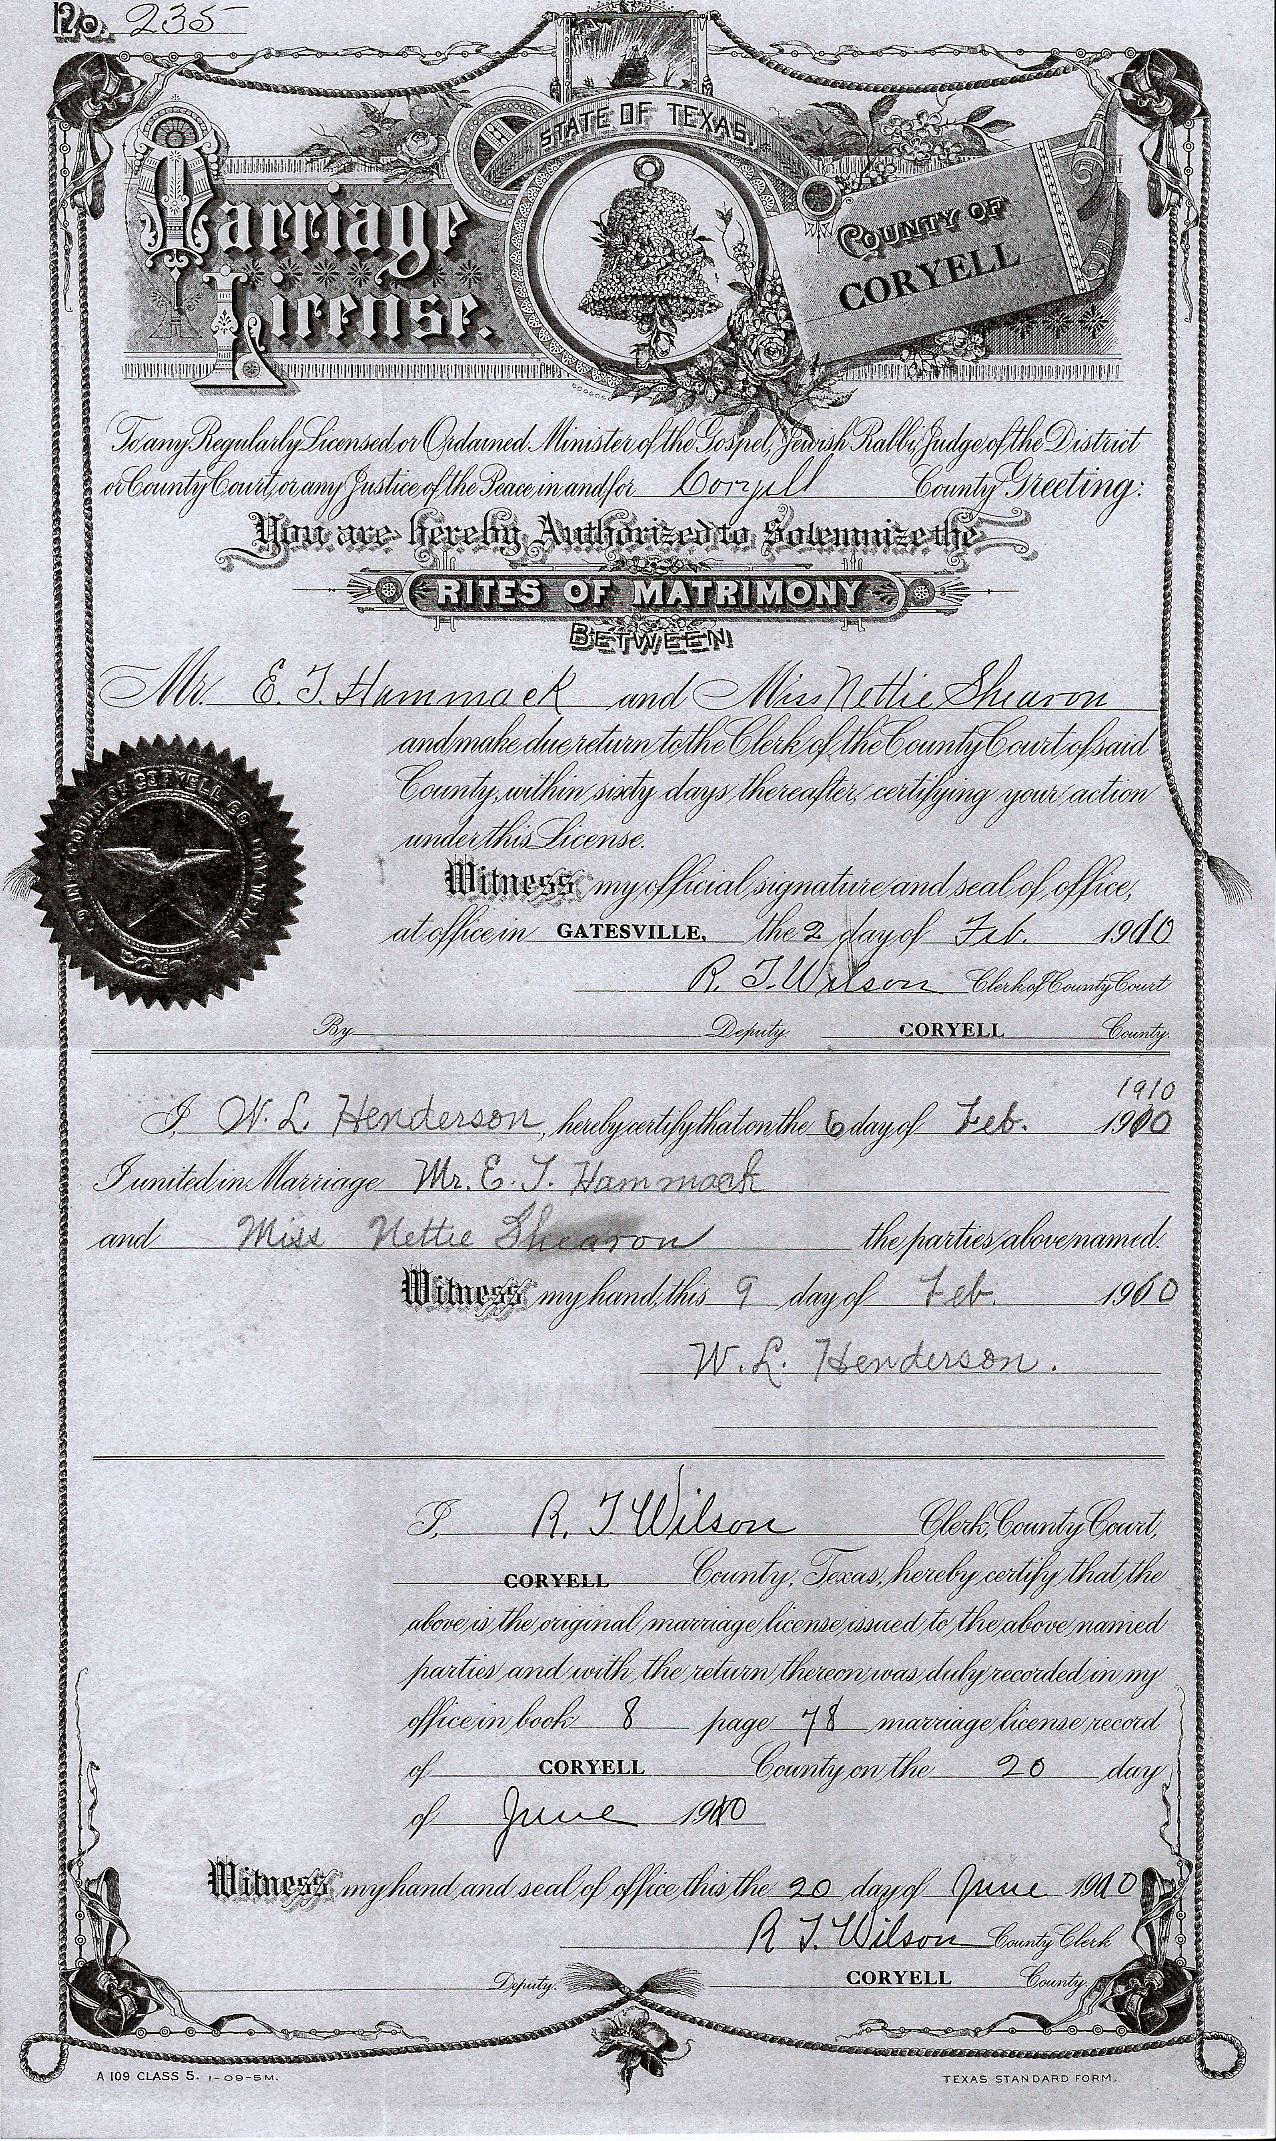 No. 235
STATE OF TEXAS.
Marriage
License.
COUNTY OF
CORYELL
To any Regularly Licensed or Ordained Minister of the Gospel, Jewish Rabbi, Judge of the District
or County Court, or any Justice of the Peace, in and for Coryell County Greeting:
You are hereby Authorized to Solemnize the
RITES OF MATRIMONY
BETWEEN
Mr. E. T. Hammack and Miss Nettie Shearon
and make due return to the Clerk of the County Court of said
County, within sixty days thereafter, certifying your action
under this License.
Witness my official signature and seal of office,
at office in GATESVILLE, the 2 day of Feb. 1910
R. T. Wilson Clerk of County Court
By Deputy. CORYELL County.
1910
I, W. L. Henderson, hereby certify that on the 6 day of Feb. 1910
I united in Marriage Mr. E. T. Hammack
and Miss Nettie Shearon the parties above named.
Witness my hand, this 9 day of Feb. 1910
W. L. Henderson.
I, R. T Wilson Clerk, County Court,
CORYELL County, Texas, hereby certify that the
above is the original marriage license issued to the above named
parties and with the return thereon was duly recorded in my
office in book 8 page 78 marriage license record
of CORYELL County on the 20 day
of June 1910
Witness my hand and seal of office this the 20 day of June 1910
R. T. Wilson County Clerk
Deputy. CORYELL County.
A 109 CLASS 5. 1-09-5M.
TEXAS STANDARD FORM.